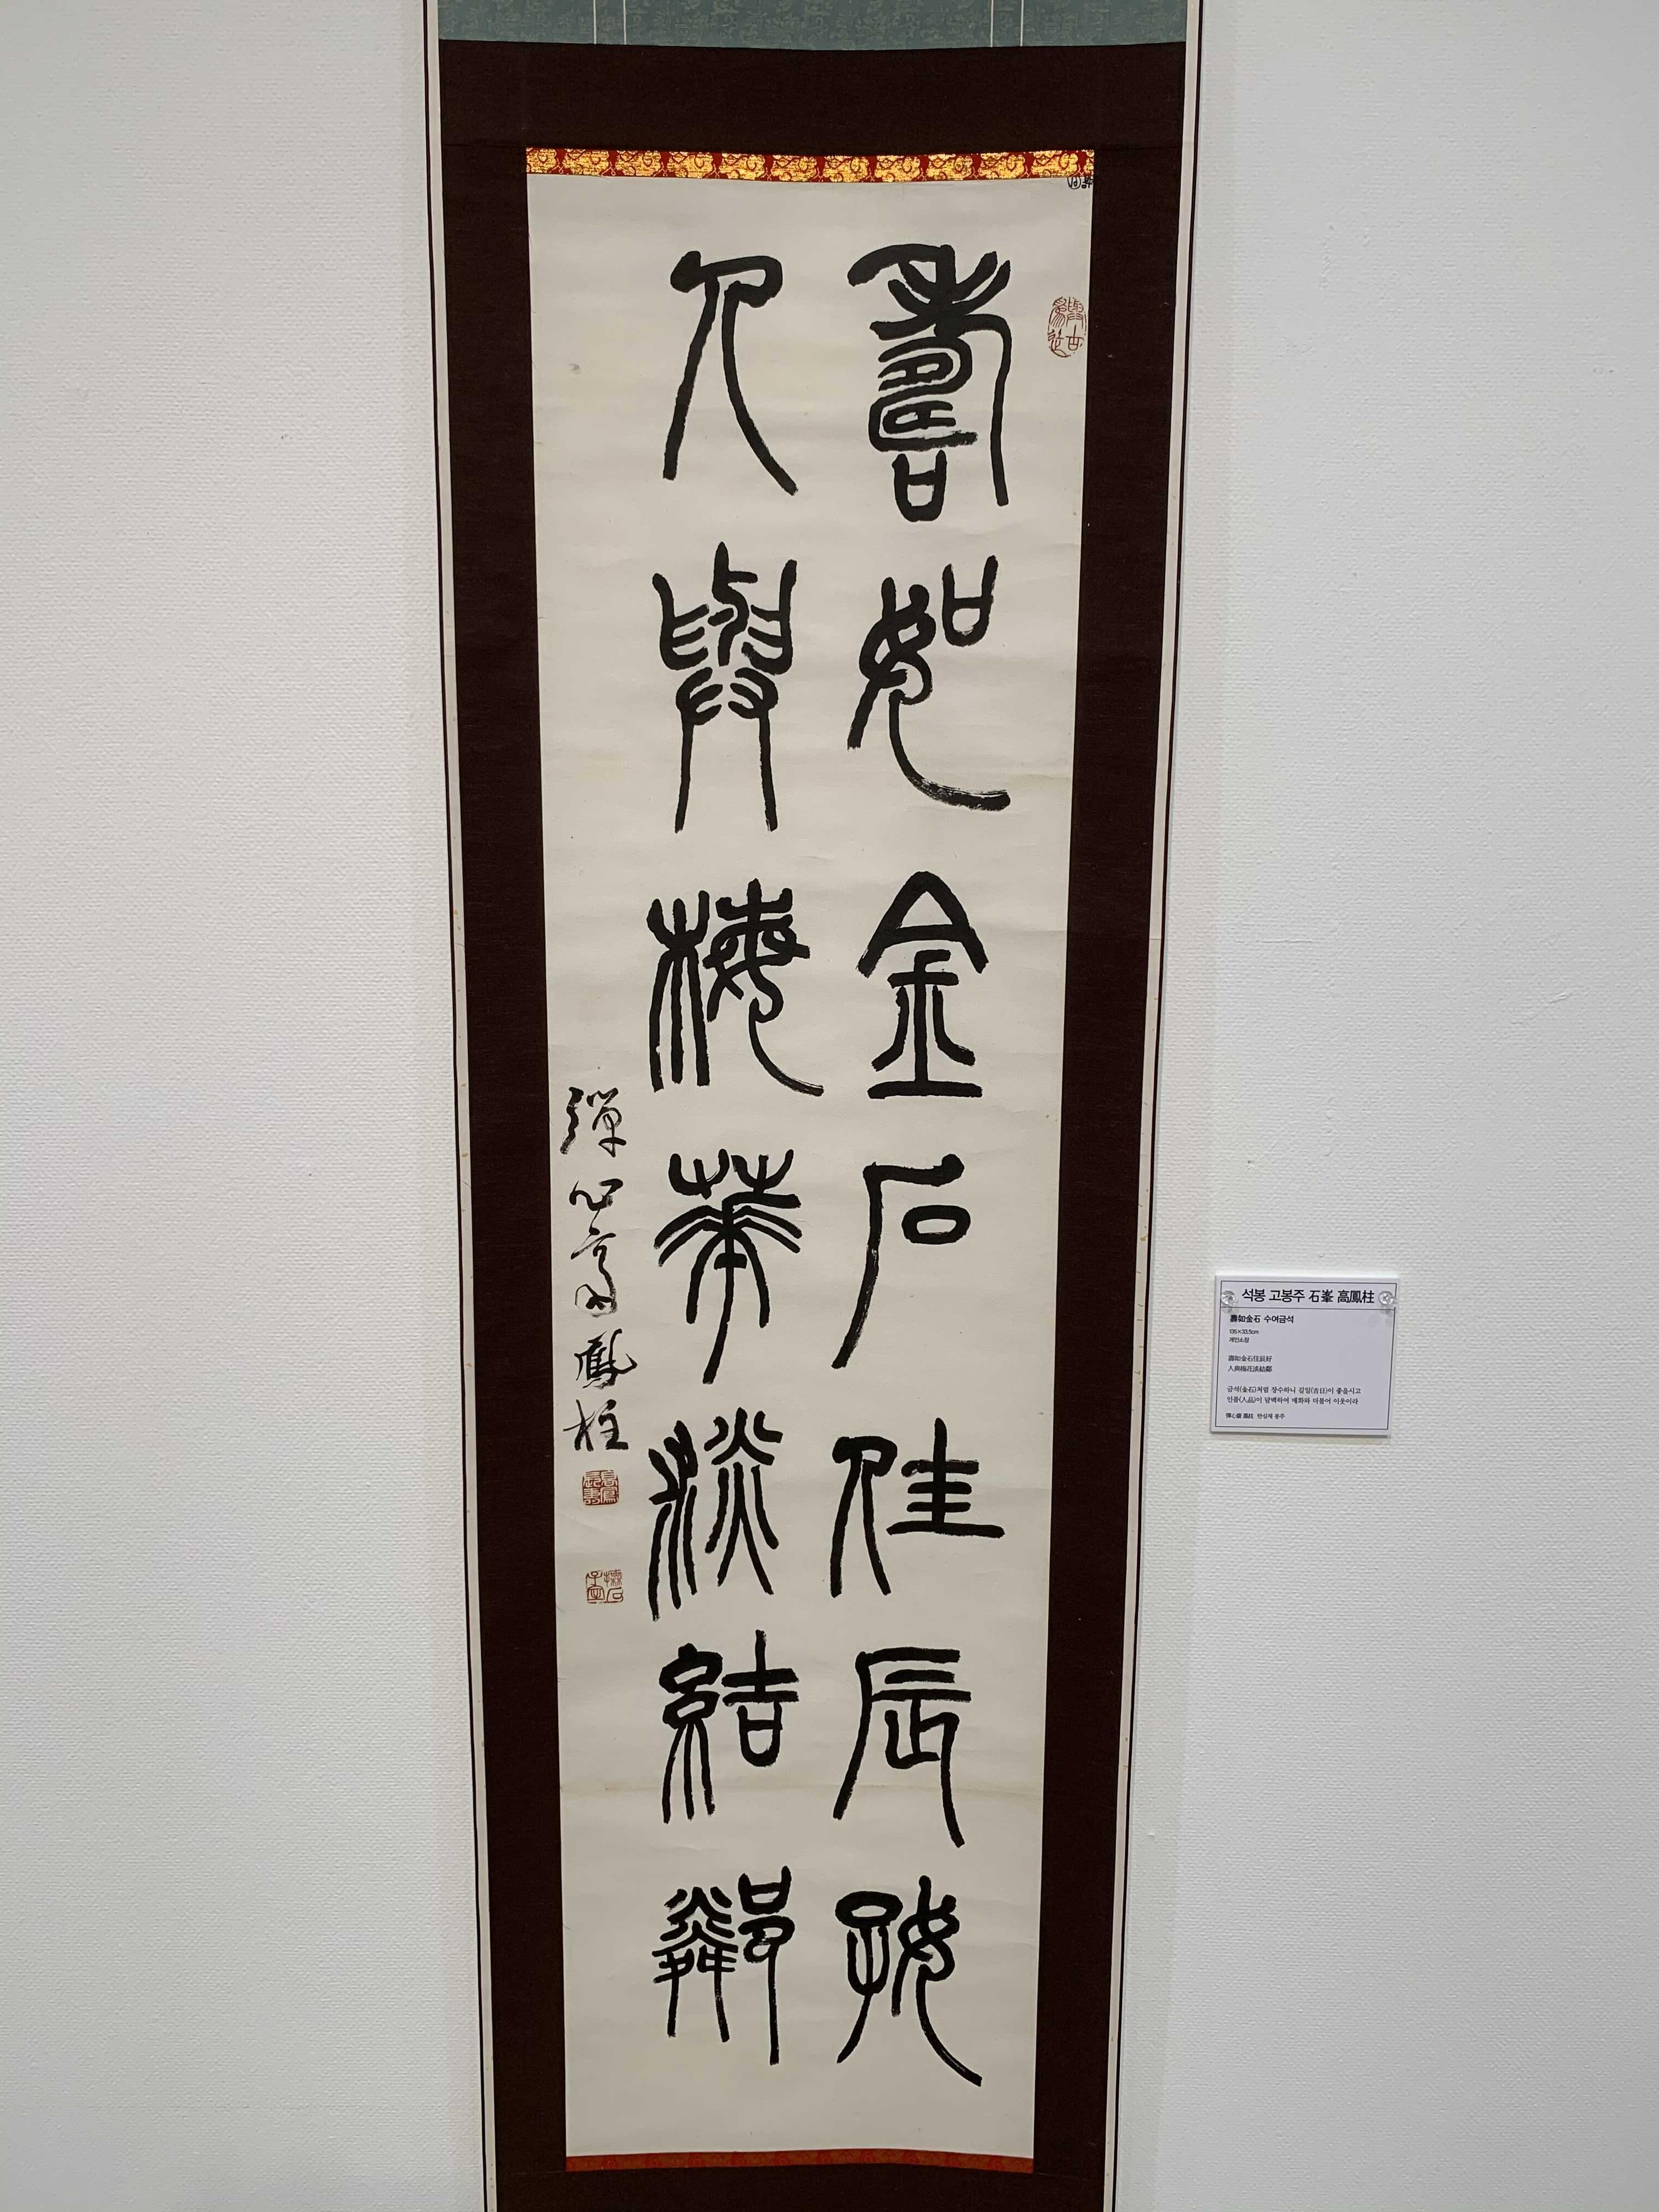 壽如金石佳辰好
人與梅華淡結鄰
彈心齋鳳柱
與古爲徒
석봉 고봉주 石峯 高鳳柱
壽如金石 수여금석
135×33.5cm
개인소장
壽如金石佳辰好
人與梅花淡結鄰
금석(金石)처럼 장수하니 길일(吉日)이 좋을시고
인품(人品)이 담백하여 매화와 더불어 이웃이라
彈心齋 鳳柱 탄심재 봉주